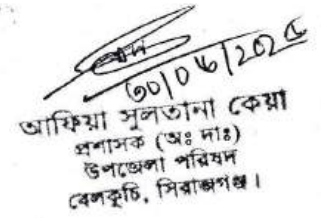 ৩০/০৬/২০২৫
আফিয়া সুলতানা কেয়া
প্রশাসক (অঃ দাঃ)
উপজেলা পরিষদ
বেলকুচি, সিরাজগঞ্জ।